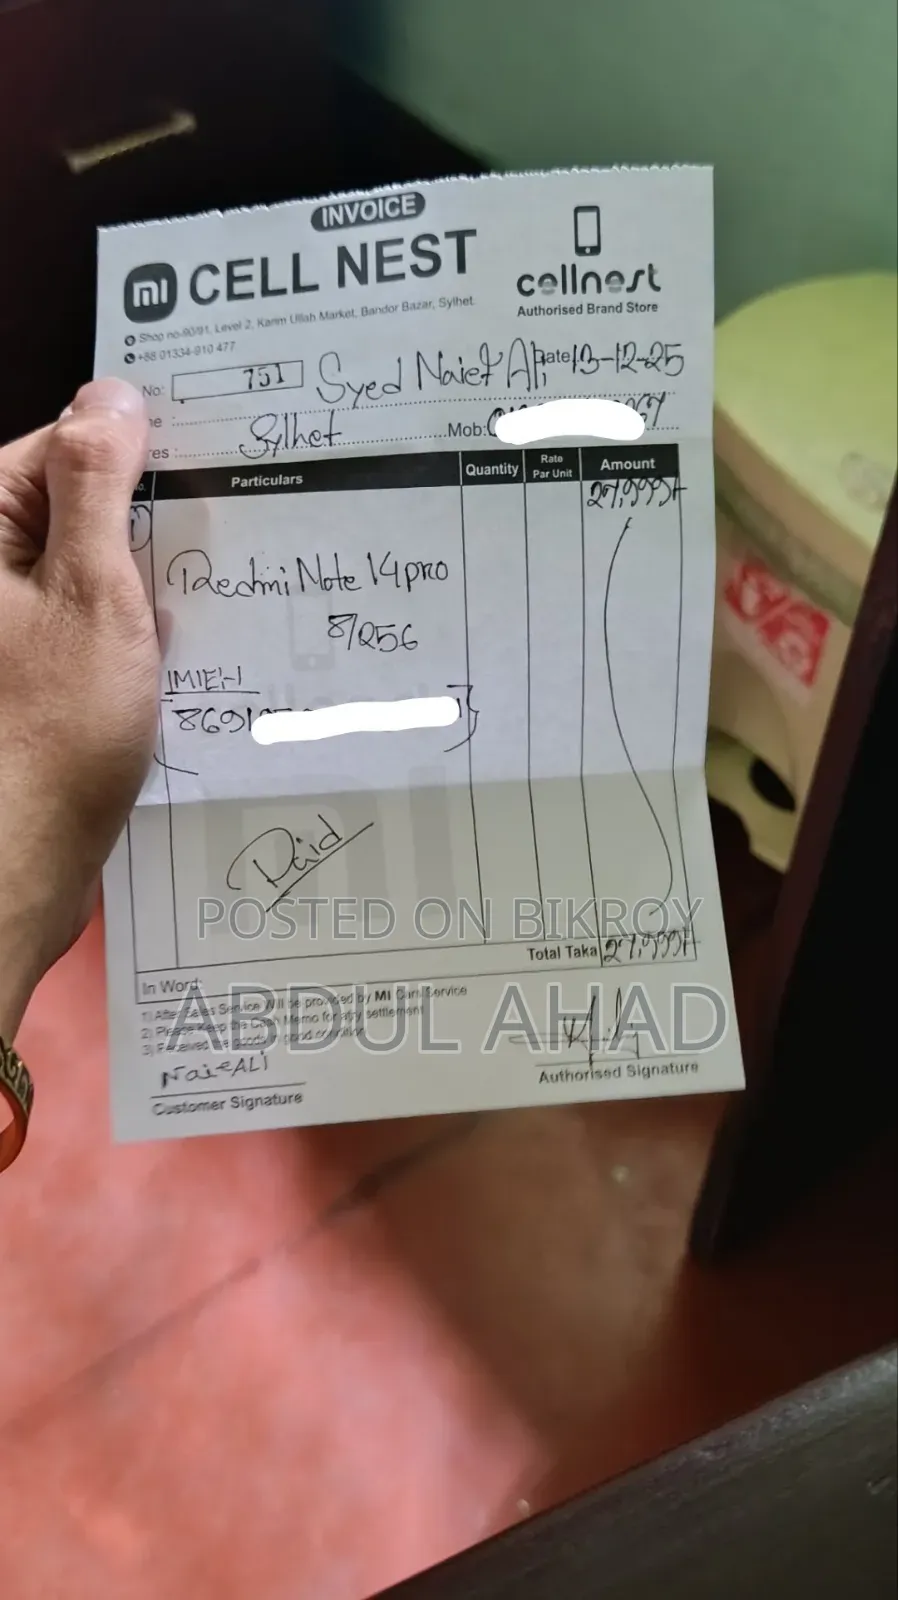 INVOICE
mi CELL NEST
cellnest
Authorised Brand Store
Shop no-90/91, Level 2, Karim Ullah Market, Bandor Bazar, Sylhet.
+88 01334-910 477
No: 751
Syed Naief Ali
Date 13-12-25
Sylhet
Mob:
Particulars
Quantity
Rate Par Unit
Amount
1
27,999/-
Redmi Note 14 pro
8/256
IMIE:-1
8691
Paid
POSTED ON BIKROY
Total Taka 27,999/-
In Word:
1) After Sales Service Will be provided by MI Care/Service
2) Please Keep the Cash Memo for any settlement
3) Received the goods in good condition
ABDUL AHAD
Naief ALI
Customer Signature
Authorised Signature